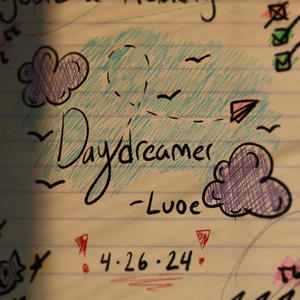 Daydreamer
-Luoe
! 4.26.24 !